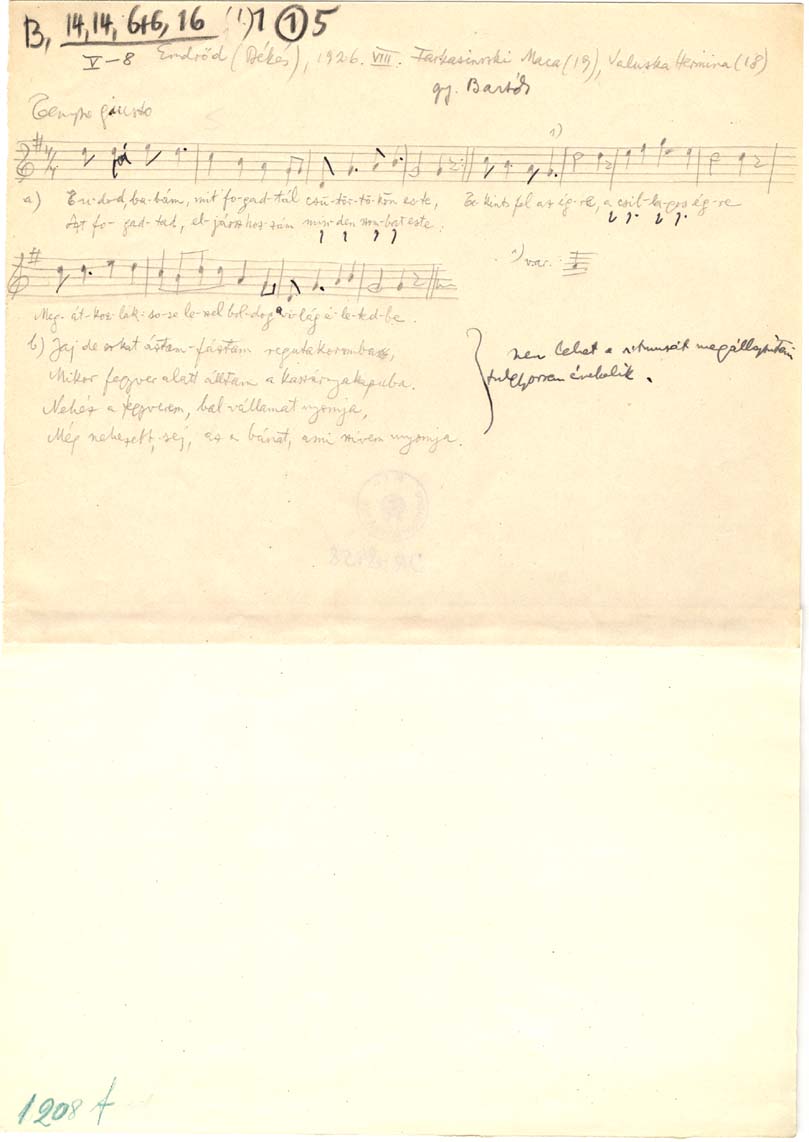 B, 14,14, 6+6, 16 (1.)1 ① 5
V–8 Endrőd (Békés), 1926. VIII. Farkasinszki Maca (19), Valuska Hermina (18)
gy. Bartók
Tempo giusto
a) Tu-dod, ba-bám, mit fo-gad-tál csü-tör-tö-kön es-te, Te-kints fel az ég-re, a csil-la-gos ég-re
Azt fo-gad-tad, el-jársz hoz-zám min-den szom-bat este;
1) var.
Meg-át-koz-lak so-se le-szel bol-dog a vi-lág é-le-ted-be.
b) Jaj de sokat áztam-fáztam regutakoromba,
Mikor fegyver alatt álltam a kaszárnyakapuba.
Nehéz a fegyverem, bal vállamat nyomja,
Még nehezebb, sej, az a bánat, ami szivem nyomja.
nem lehet a ritmusát megállapítani
túlgyorsan éneklik.
1208 f